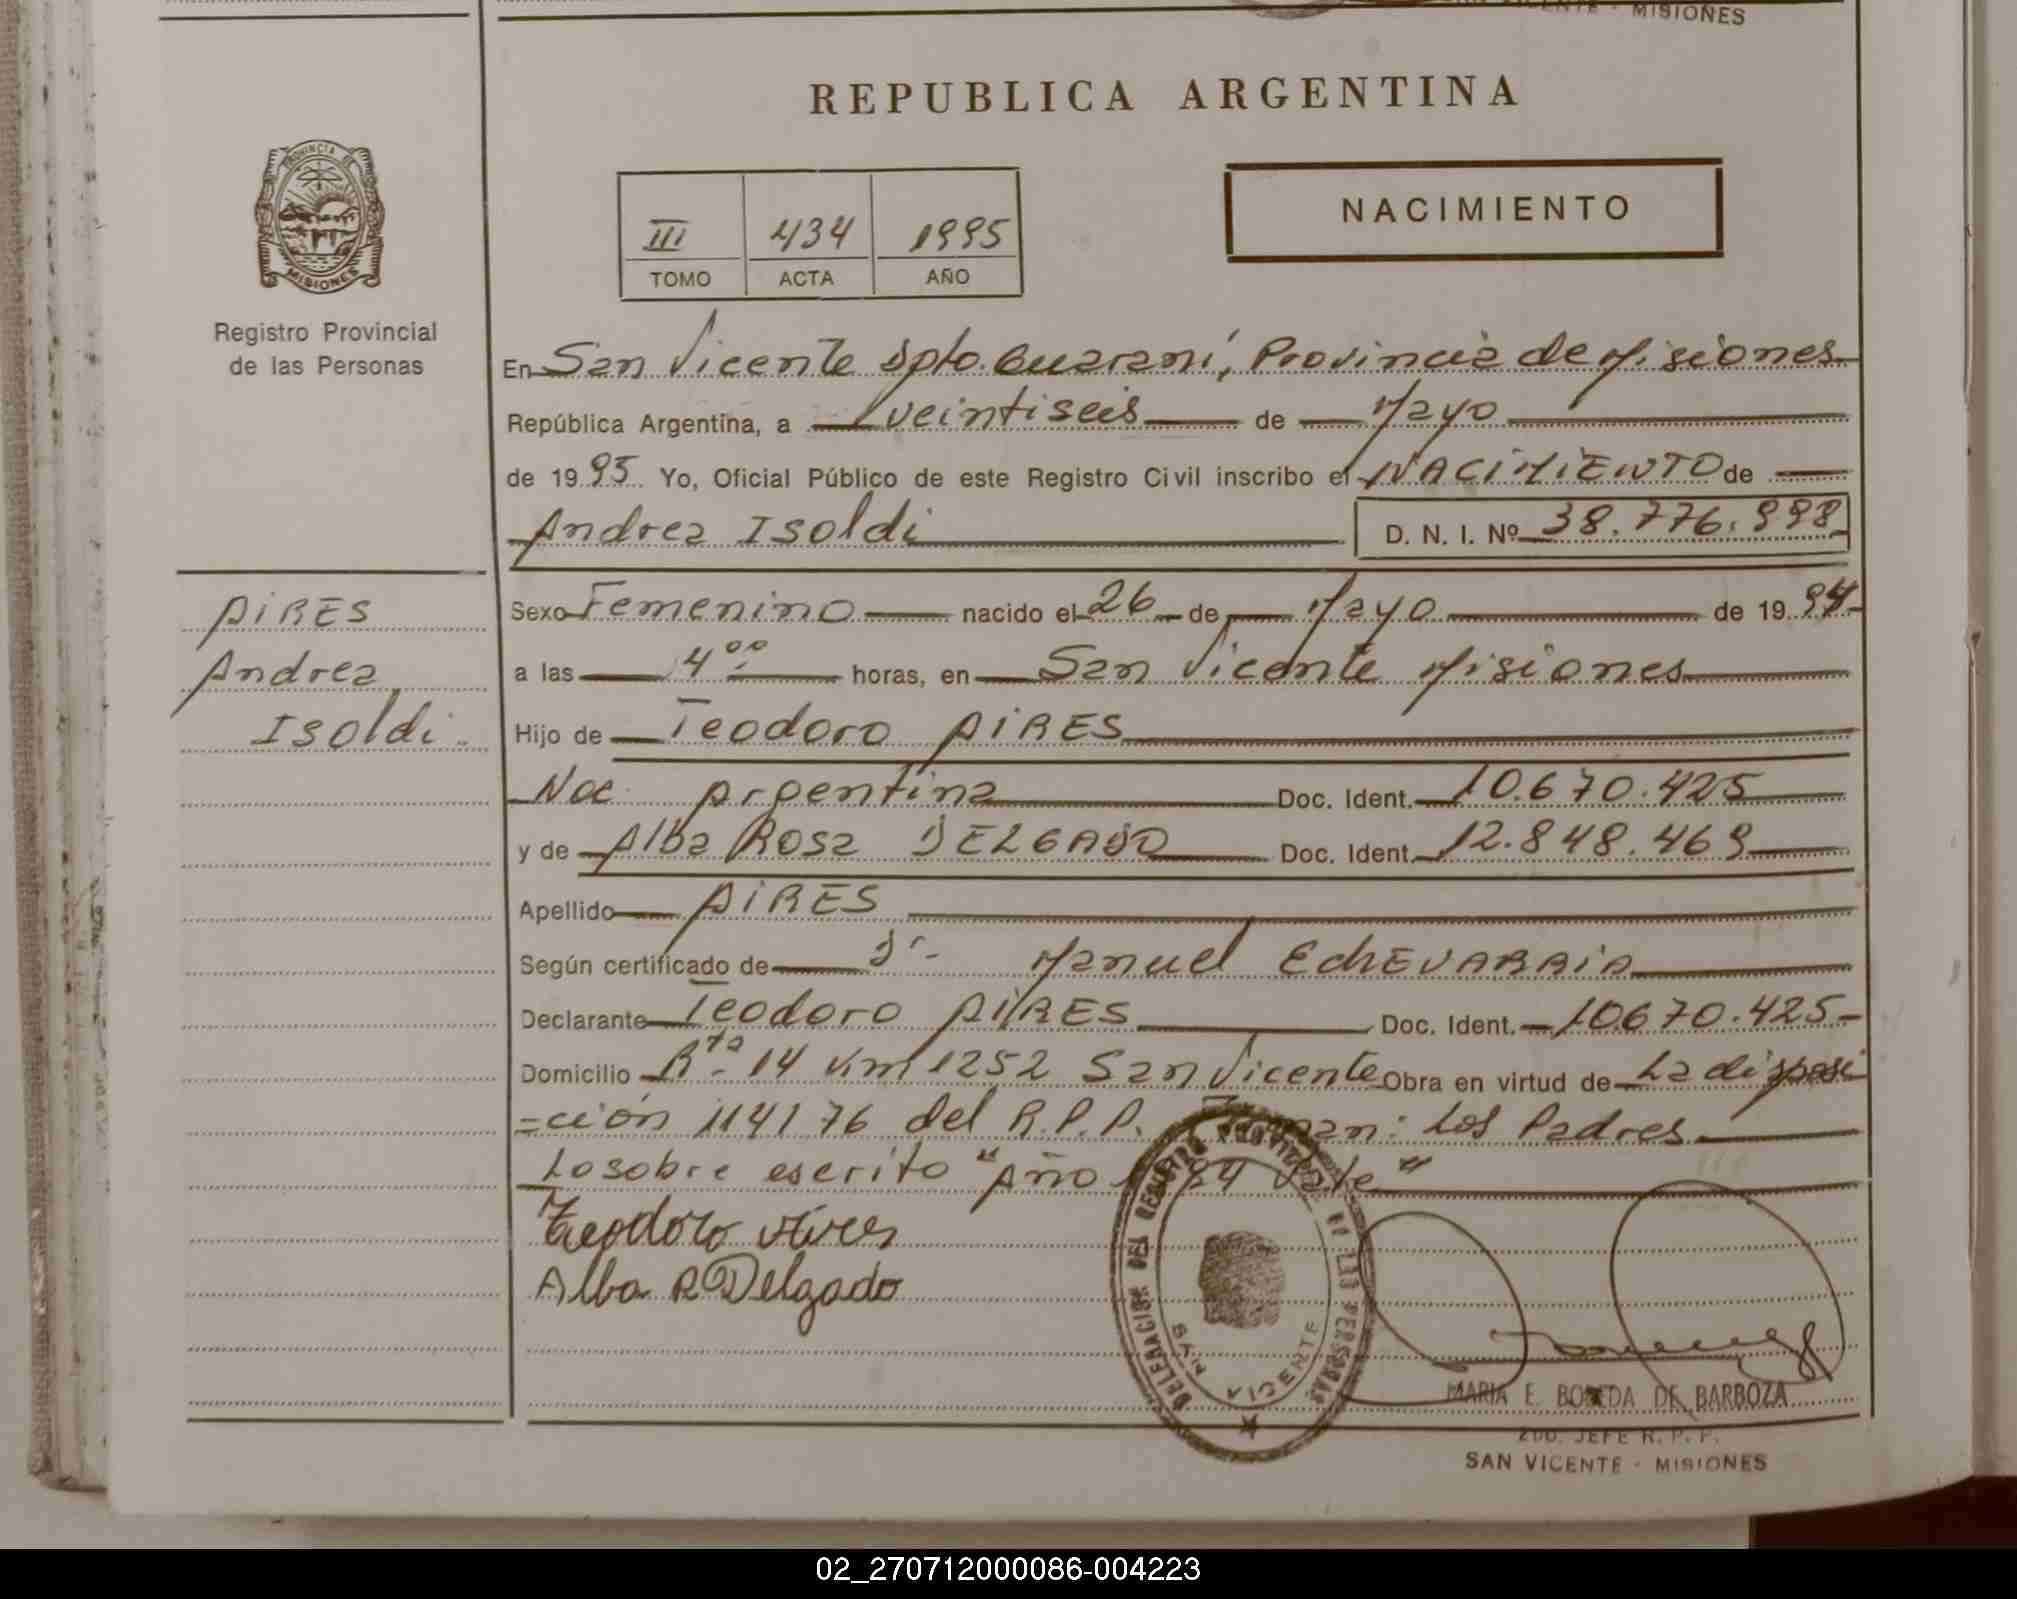 SAN VICENTE - MISIONES
REPUBLICA ARGENTINA
PROVINCIA DE
MISIONES
Registro Provincial
de las Personas
III 434 1995
TOMO ACTA AÑO
NACIMIENTO
En San Vicente Dpto. Guaraní, Provincia de Misiones
República Argentina, a veintiseis de Mayo
de 1995. Yo, Oficial Público de este Registro Civil inscribo el NACIMIENTO de
Andrea Isoldi D. N. I. Nº 38.776.998
PIRES
Andrea
Isoldi.
Sexo Femenino nacido el 26 de Mayo de 1994
a las 400 horas, en San Vicente Misiones
Hijo de Teodoro PIRES
Nac. Argentina Doc. Ident. 10.670.425
y de Alba Rosa DELGADO Doc. Ident. 12.848.469
Apellido PIRES
Según certificado de Dr. Manuel EchEVARRIA
Declarante Teodoro PIRES Doc. Ident. 10670.425
Domicilio Rta 14 Km 1252 San Vicente Obra en virtud de La disposi
=ción 1141 76 del R.P.P. : Los Padres
Lo sobre escrito "Año 1994 Vale"
Teodoro Pires
Alba R Delgado
DELEGACION DEL REGISTRO PROVINCIAL DE LAS PERSONAS
SAN VICENTE
MARIA E. DE BARBOZA
2DO. JEFE R. P. P.
SAN VICENTE - MISIONES
02_270712000086-004223